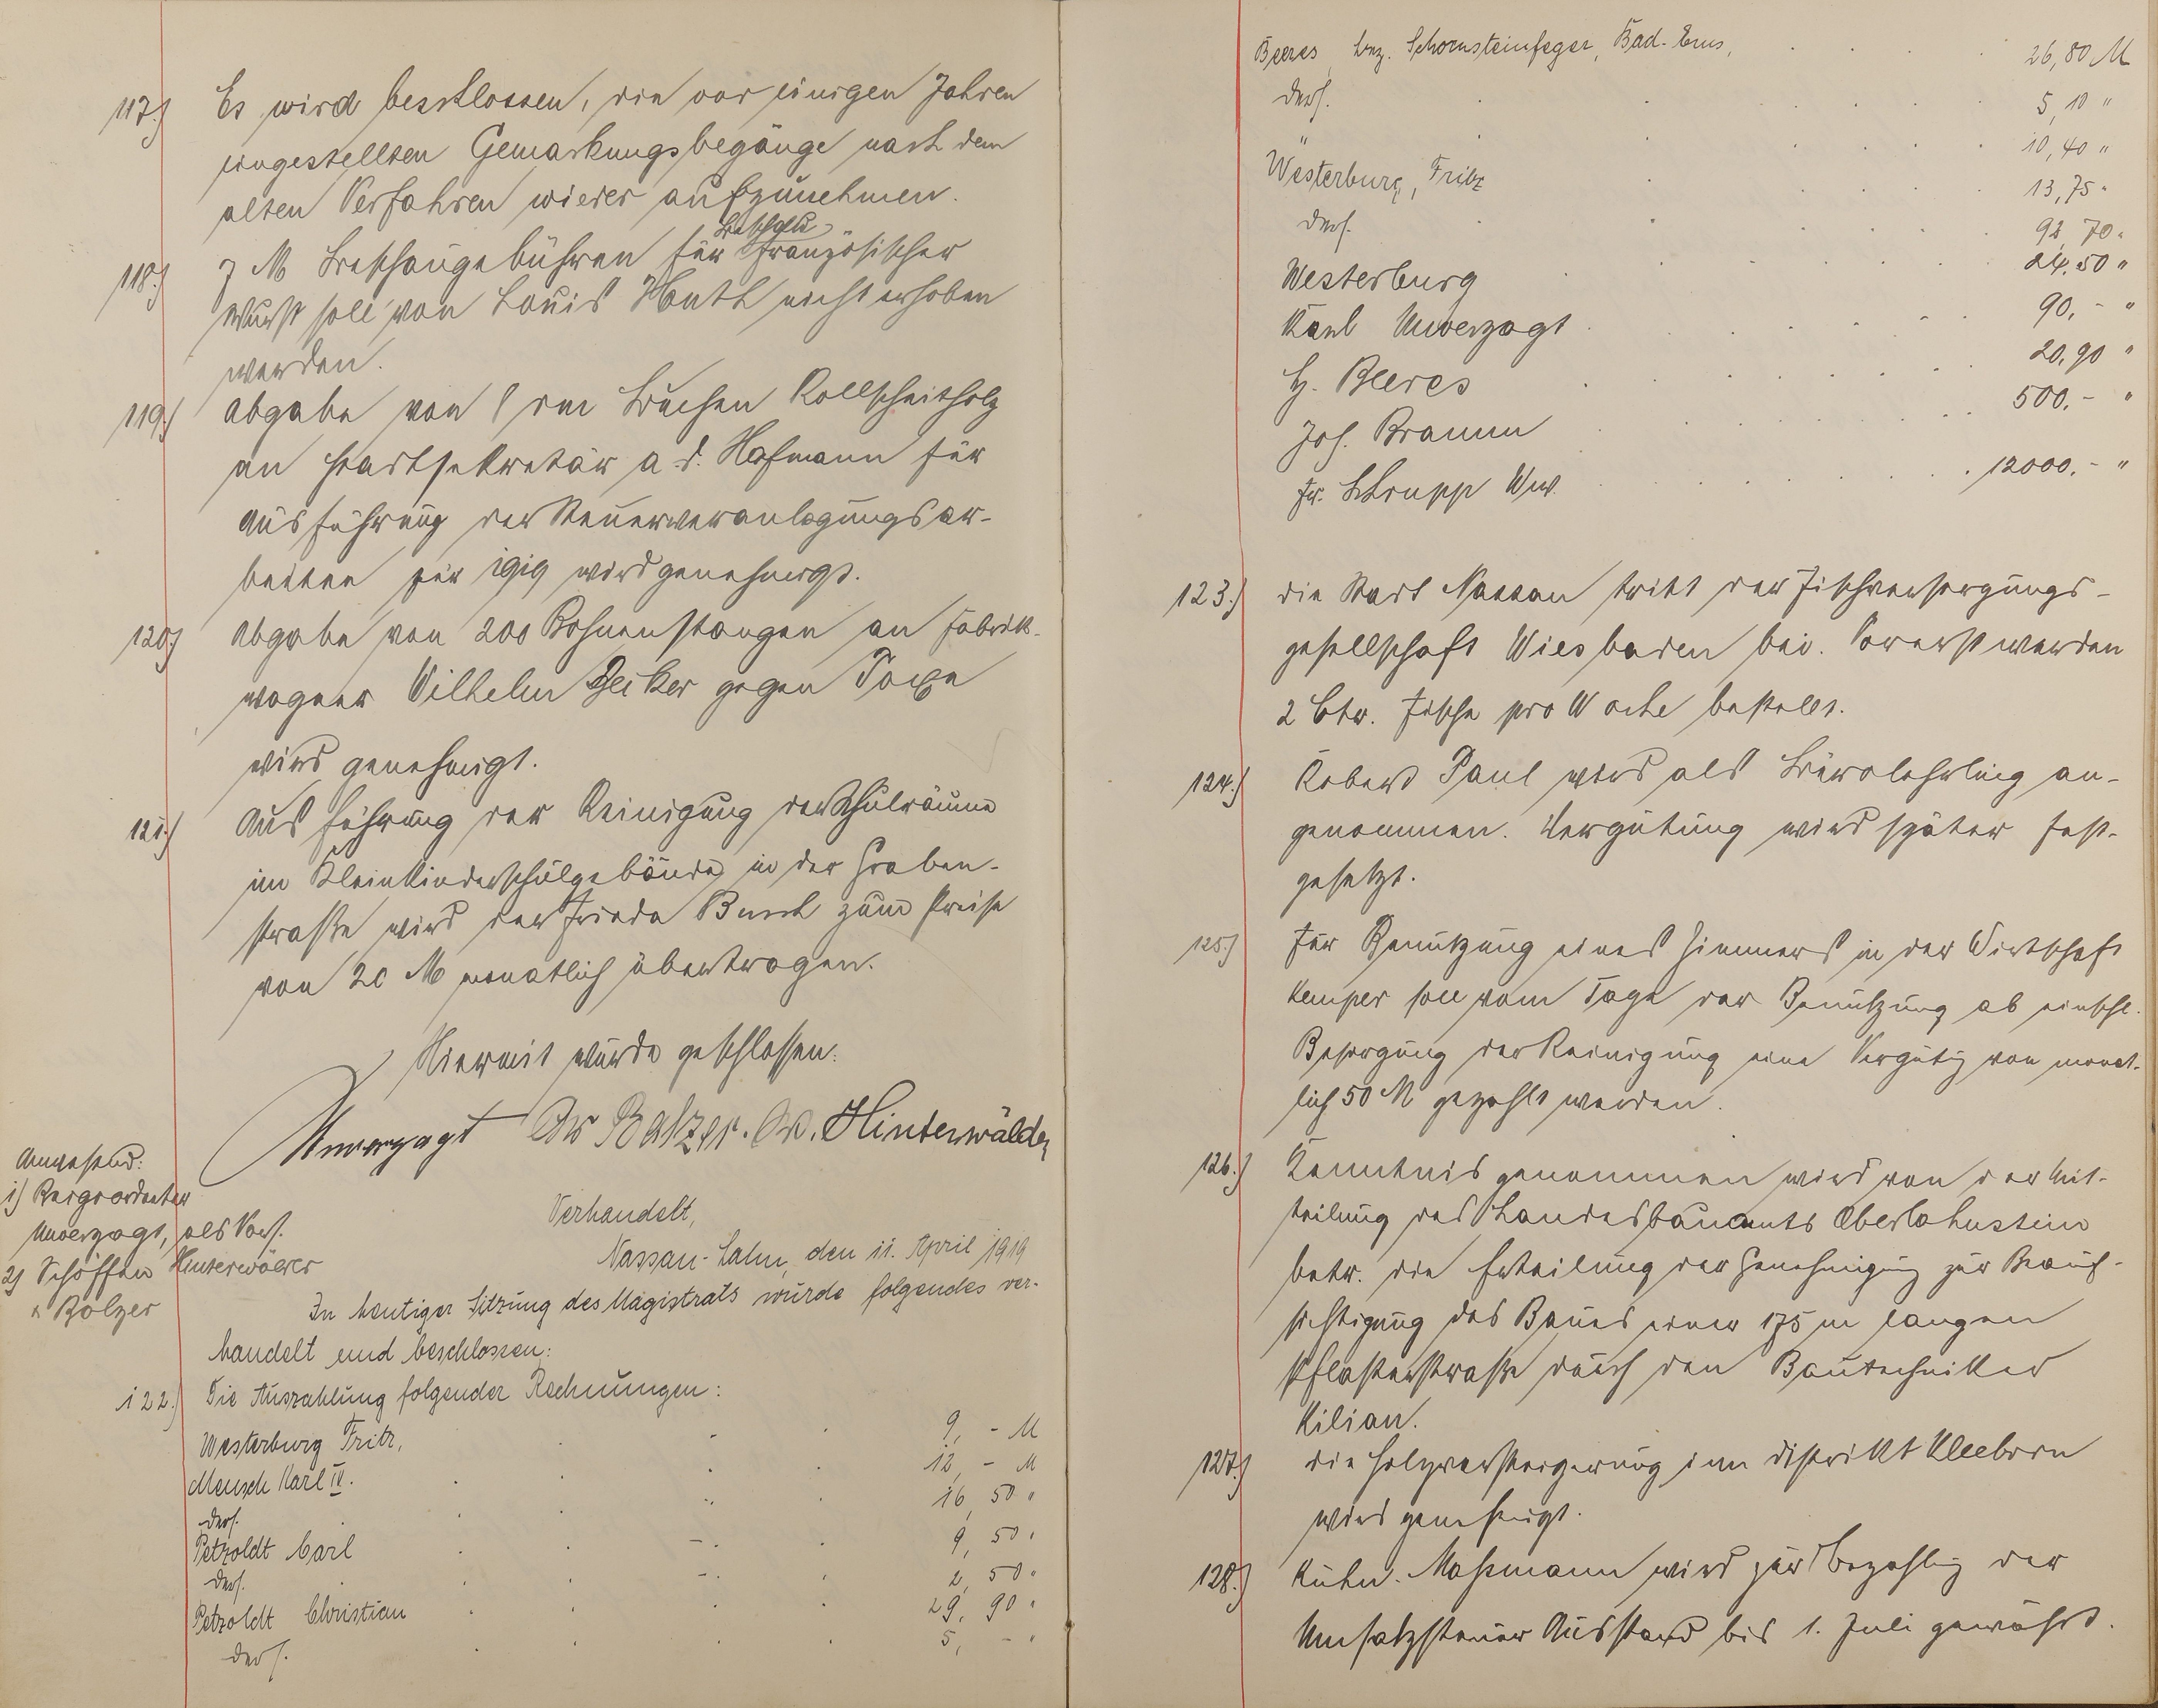 117.) Es wird beschlossen, die vor einigen Jahren
eingestellten Gemarkungsbegänge nach dem
alten Verfahren wieder aufzunehmen.
118.) 7 M Beschaugebühren für Beschau französischer
Wurst soll von Louis Huth nicht erhoben
werden.
119.) Abgabe von 1 rm Buchen Rollscheitholz
an Stadtsekretär a. d. Hofmann für
Ausführung der Steuerveranlagungsar-
beiten für 1919 wird genehmigt.
120.) Abgabe von 200 Bohnenstangen an Fabrik-
wagner Wilhelm Becker gegen Taxe
wird genehmigt.
121.) Ausführung der Reinigung der Schulräume
im Kleinkinderschulgebäude in der Graben-
straße wird der Frieda Busch zum Preise
von 20 M monatlich übertragen.
Hiermit wurde geschlossen.
Unverzagt Balzer. Hinterwälder
Anwesend:
1) Beigeordneter
Unverzagt, als Vors.
2) Schöffen Hinterwälder
" Balzer
Verhandelt,
Nassau-Lahn, den 11. April 1919
In heutiger Sitzung des Magistrats wurde folgendes ver-
handelt und beschlossen:
122.) Die Auszahlung folgender Rechnungen:
Westerburg Fritz, 9, - M
Mensch Karl IV. 12, - M
ders. 16, 50 "
Petzoldt Carl 9, 50 "
ders. 2, 50 "
Petzoldt Christian 29, 90 "
ders. 5, - "
Beeres, Bez. Schornsteinfeger, Bad-Ems, 26,80 M
ders. 5, 10 "
" 10, 40 "
Westerburg, Fritz 13, 75 "
ders. 92, 70 "
Westerburg 24. 50 "
Karl Unverzagt 90, - "
H. Beeres 20, 90 "
Joh. Bramm 500. - "
Fr. Schrupp Ww. 12000. - "
123.) Die Stadt Nassau tritt der Fischversorgungs-
gesellschaft Wiesbaden bei. Vorerst werden
2 Ctr. Fische pro Woche bestellt.
124.) Robert Paul wird als Bürolehrling an-
genommen. Vergütung wird später fest-
gesetzt.
125.) Für Benutzung eines Zimmers in der Wirtschaft
Kemper soll vom Tage der Benutzung ab einschl.
Besorgung der Reinigung eine Vergütg von monat-
lich 50 M gezahlt werden.
126.) Kenntnis genommen wird von der Mit-
teilung des Landesbauamts Oberlahnstein
betr. die Erteilung der Genehmigung zur Beauf-
sichtigung des Baues einer 175 m langen
Pflasterstraße durch den Bautechniker
Kilian.
127.) Die Holzversteigerung im Distrikt Kleeborn
wird genehmigt.
128.) Kuhn. Maßmann wird zur Bezahlg der
Umsatzsteuer Ausstand bis 1. Juli gewährt.